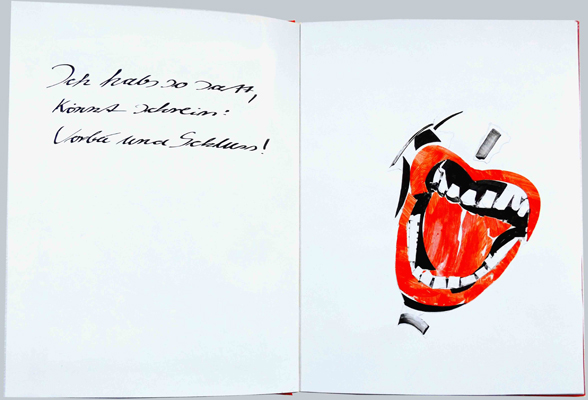 Ich habs so satt,
Könnt schrein:
Vorbei und Schluss!